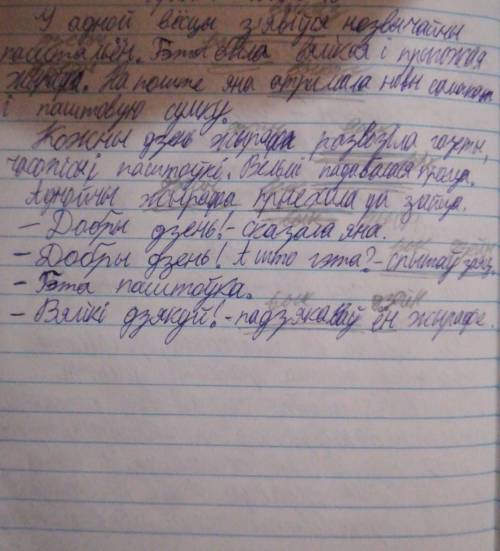 У адной вёсцы з'явіўся незвычайны
паштальён. Гэта была вялікая і прыгожая
жырафа. На пошце яна атрымала новы самакат
і паштовую сумку.
Кожны дзень жырафа развозіла газеты,
часопісы і паштоўкі. Вельмі падабалася праца.
Аднойчы жырафа прыехала да зайца.
– Добры дзень! – сказала яна.
– Добры дзень! А што гэта? – спытаў заяц.
– Гэта паштоўка.
– Вялікі дзякуй! – падзякаваў ён жырафе.